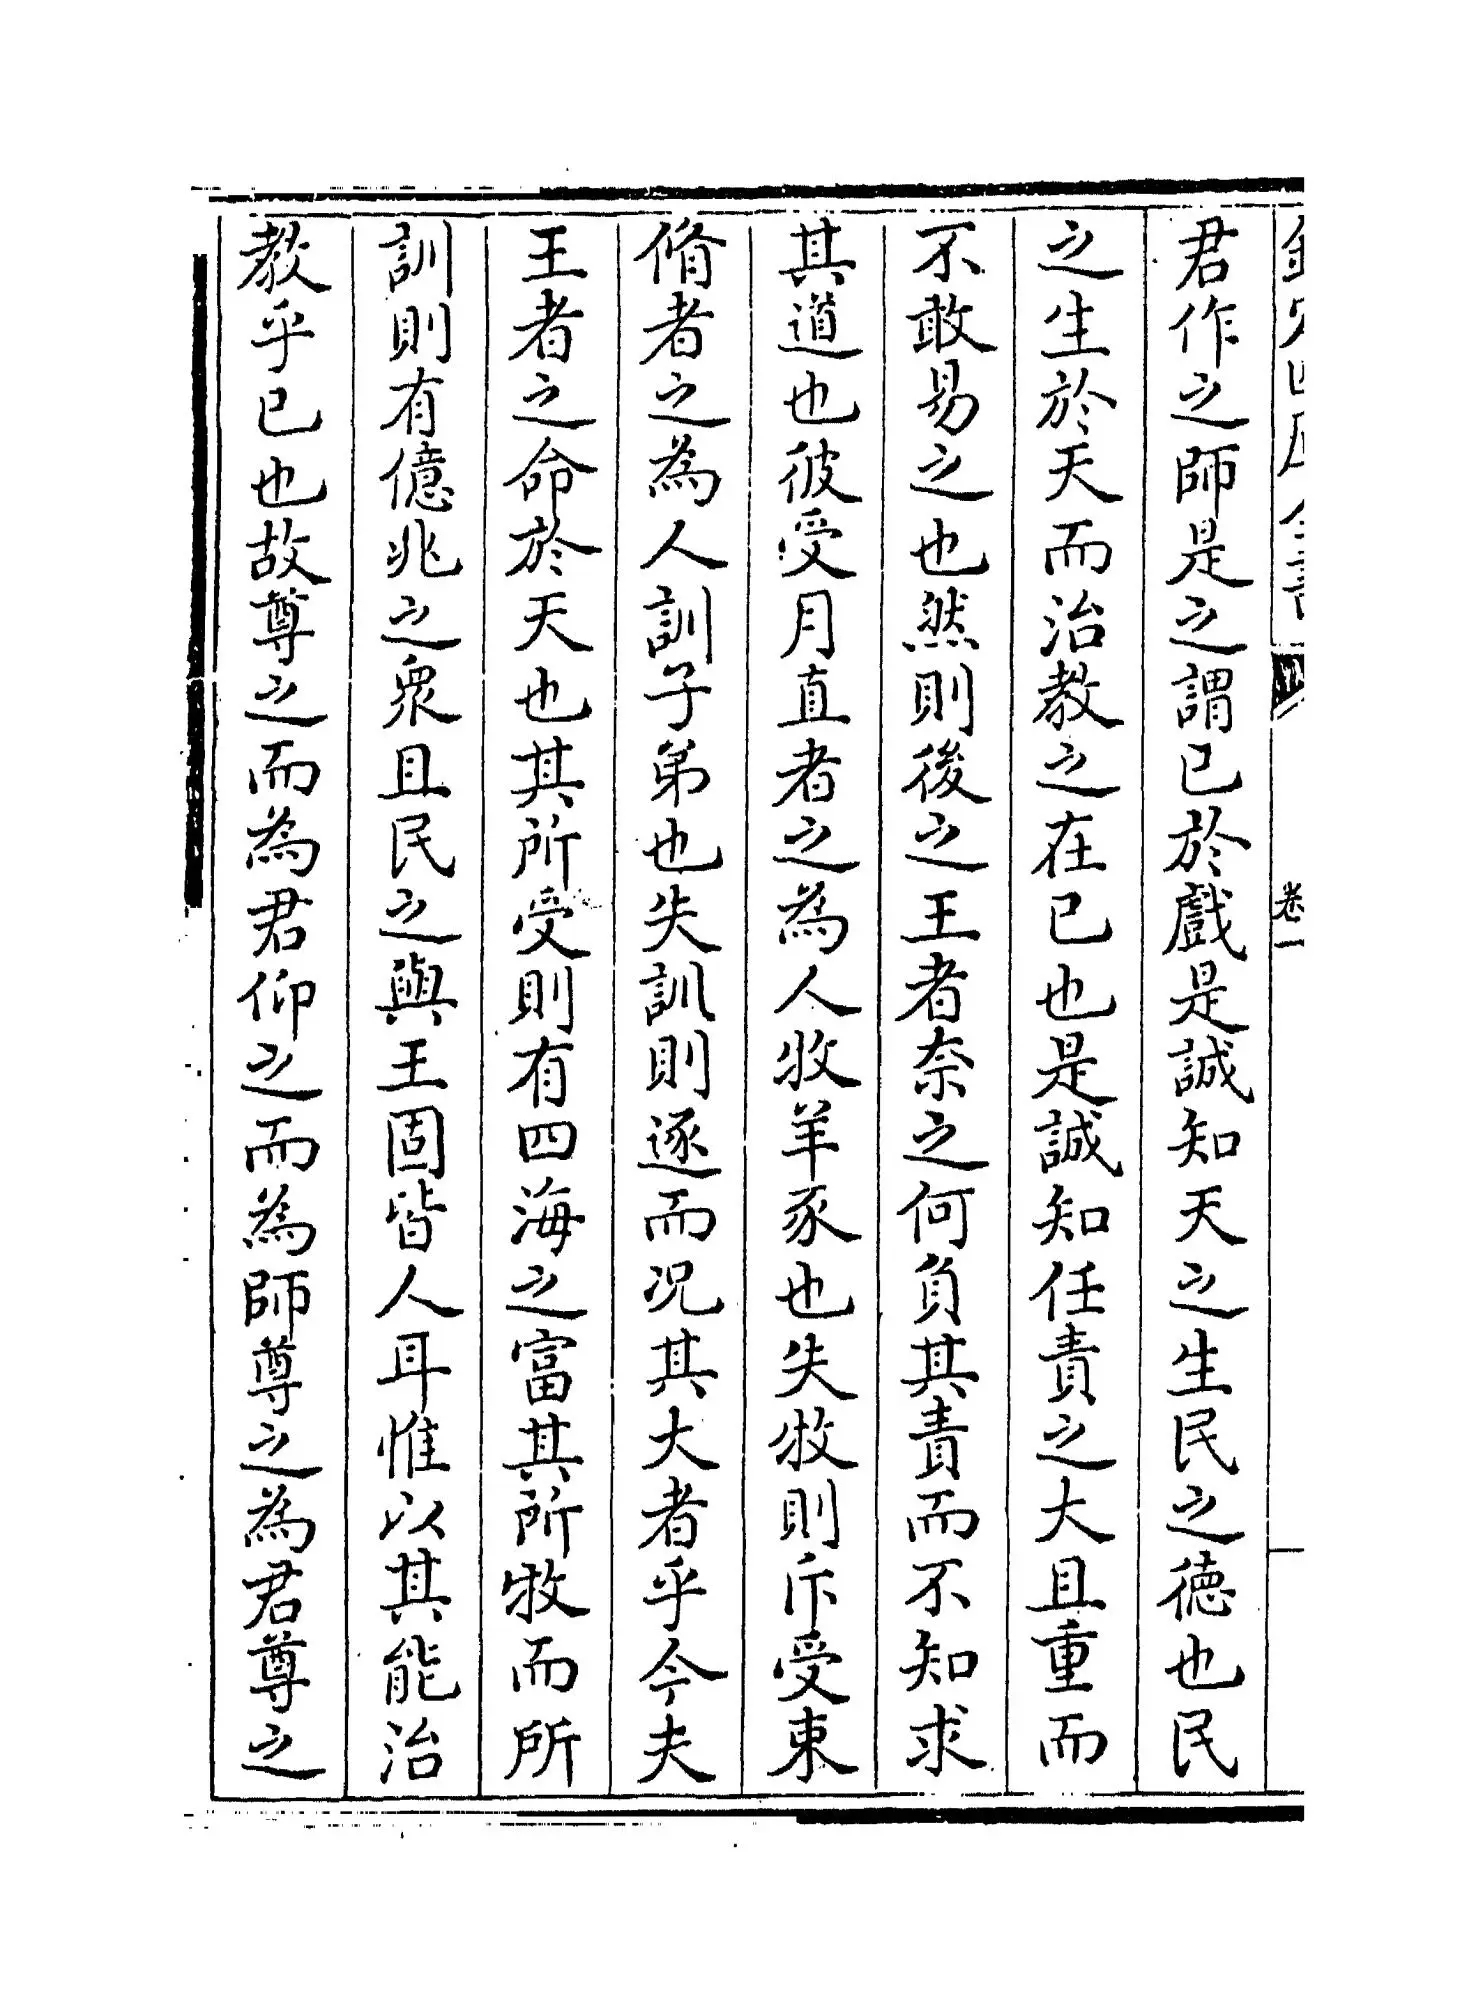 欽定四庫全書 卷一
君作之師是之謂已於戲是誠知天之生民之德也民
之生於天而治教之在已也是誠知任責之大且重而
不敢易之也然則後之王者奈之何負其責而不知求
其道也彼受月直者之為人牧羊豕也失牧則斥受東
脩者之為人訓子弟也失訓則逐而况其大者乎今夫
王者之命於天也其所受則有四海之富其所牧而所
訓則有億兆之衆且民之與王固皆人耳惟以其能治
教乎已也故尊之而為君仰之而為師尊之為君尊之